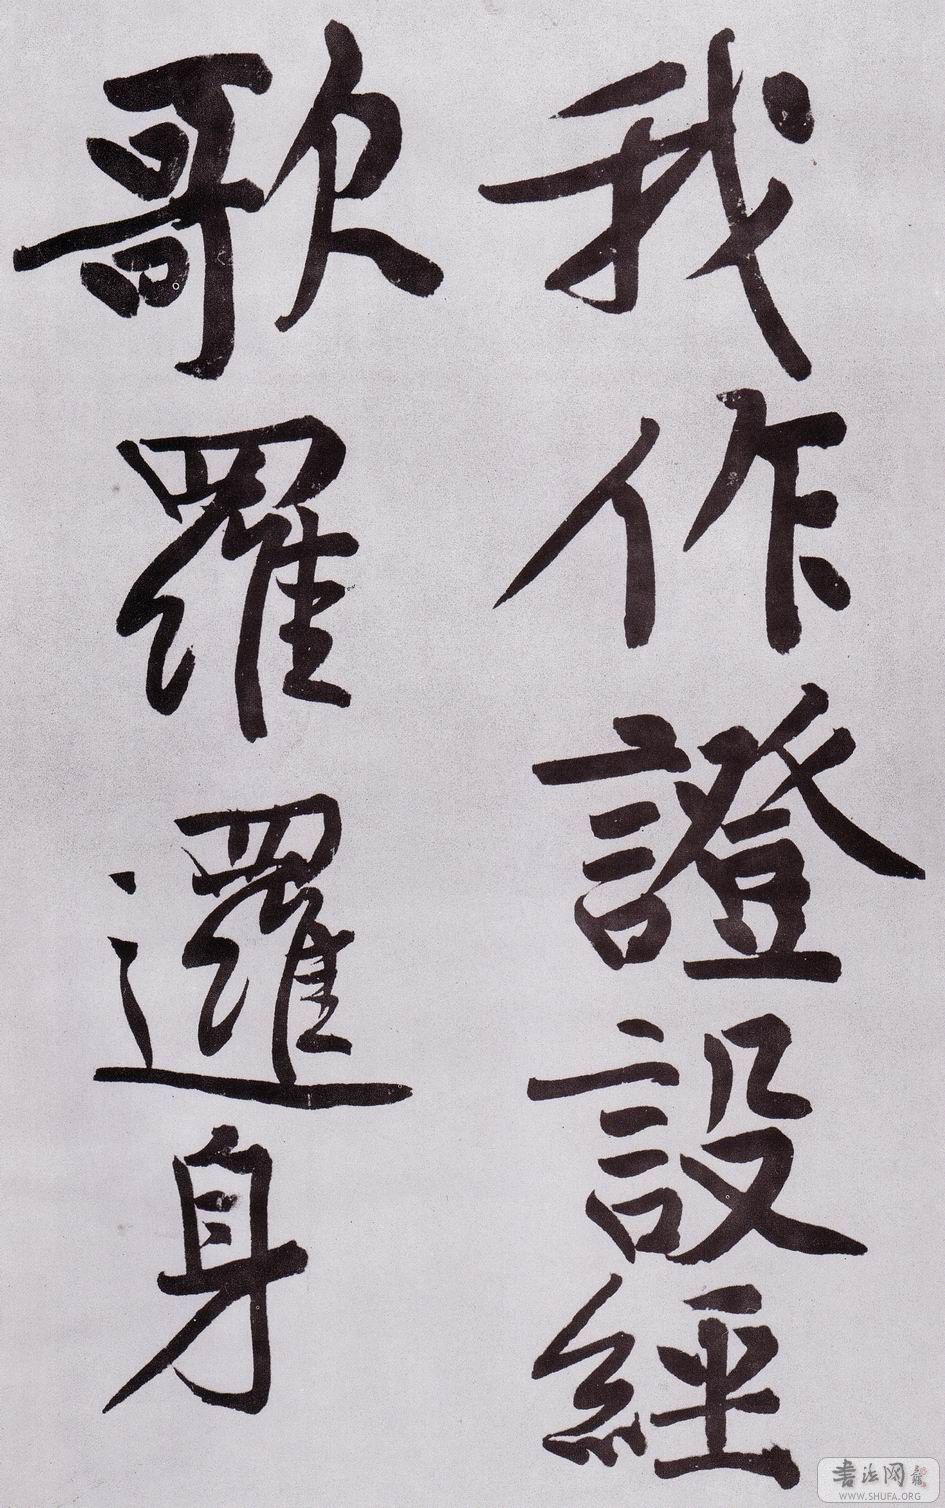 我作證設經
歌羅邏身
書法网
WWW.SHUFA.ORG